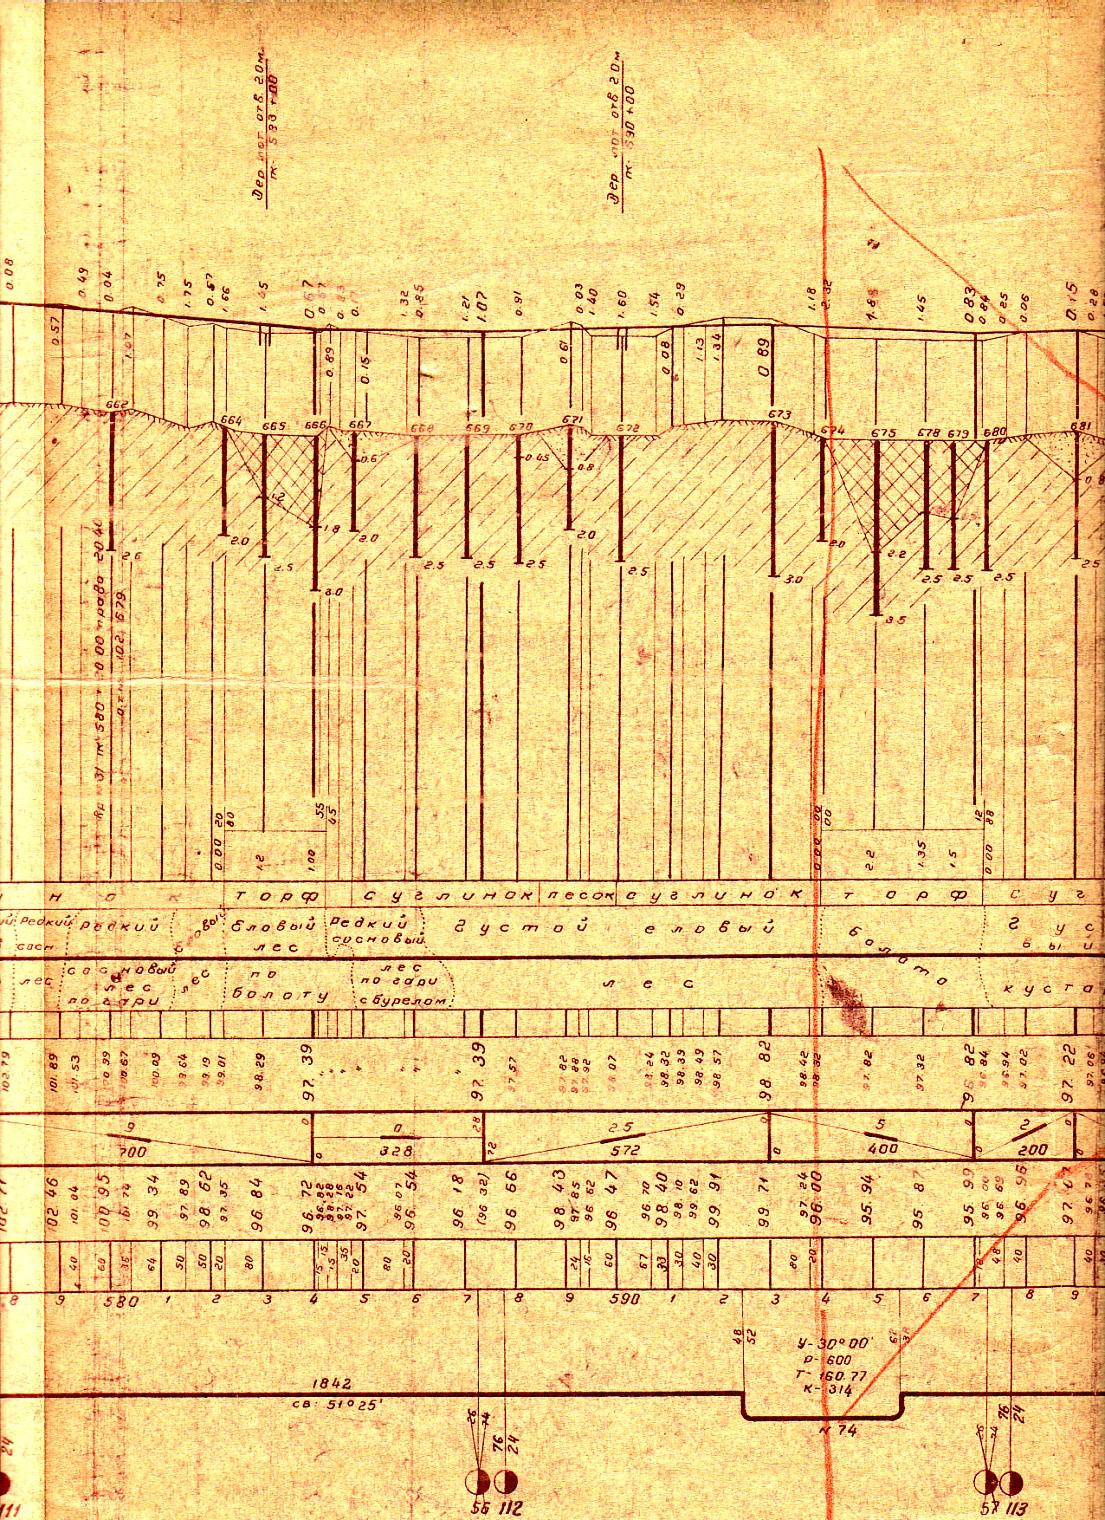 Дер лот отв. 2.0м.
пк 583+00
Дер лот отв 2.0м
пк 590+00
0.08
0.49
0.04
0.75
1.75
0.67
1.66
0.67
1.32
0.85
1.21
1.07
0.91
0.03
1.40
1.60
1.54
0.29
1.18
2.32
1.85
1.45
0.83
0.84
0.25
0.06
0.15
0.28
0.57
1.07
0.89
0.15
0.61
0.08
1.13
1.34
0.89
662 664 665 666 667 668 669 670 671 672 673 674 675 678 679 680 681
0.6
0.45
0.8
1.2
1.8
2.0
2.0
2.0
2.0
2.2
2.6
2.5
3.0
2.5
2.5
2.5
2.5
3.0
2.5
2.5
2.5
2.5
3.5
Rp №31 пк 580+20.00 право 20.40
102.679
0.00 20
80
1.2
1.00
55
45
0.00 00
00
2.2
1.35
1.5
0.00 12
88
Н О К ТОРФ СУГЛИНОК ПЕСОК СУГЛИНОК ТОРФ СУГ
Редкий редкий Еловый Редкий густой еловый болото гус
сосн лес сосновый вый
лес сосновый по лес лес куста
лес по гари
по гари болоту с бурелом
102.79
101.89
101.53
100.99
100.67
100.09
99.64
99.19
99.01
98.29
97.39
97.39
97.57
97.82
97.88
97.92
98.07
98.24
98.32
98.39
98.49
98.57
98.82
98.42
98.32
97.82
97.32
96.82
96.84
96.94
97.02
97.22
97.06
9
700
0
328
28
72
2.5
572
5
400
2
200
102.46
101.04
100.95
101.74
99.34
97.89
98.62
97.35
96.84
96.72
96.82
98.28
97.76
97.22
97.54
96.07
96.54
96.18
(96.32)
96.66
98.43
97.85
96.62
96.47
96.70
98.40
98.10
99.62
99.91
99.71
97.24
96.00
95.94
95.87
95.99
96.00
96.69
96.96
40 60 36 64 50 50 20 80 15 15 15 35 20 80 20 24 16 60 67 33 30 40 30 80 20 12 48 40 40
8 9 580 1 2 3 4 5 6 7 8 9 590 1 2 3 4 5 6 7 8 9
48
52
62
38
У-30°00'
Р-600
Т-160.77
К-314
N 74
1842
СВ: 51°25'
24
26
74
76
24
26
74
76
24
111
56 112
57 113